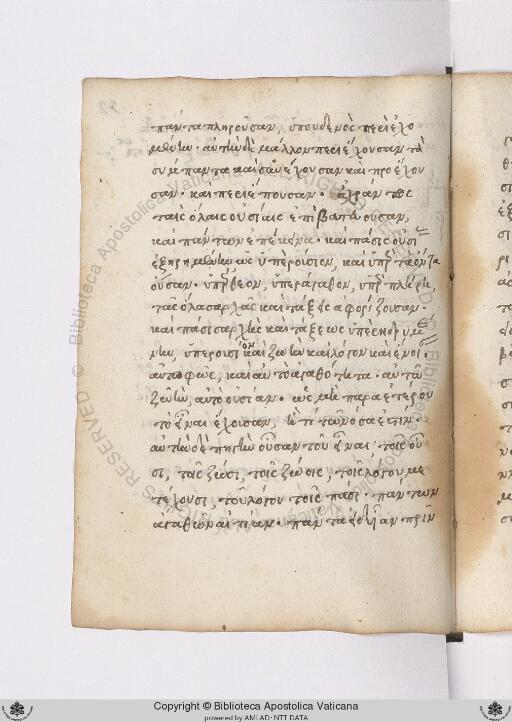 πάντα πληροῦσαν, ὑπουδενὸς περιεχο
μένην· αὐτὴν δὲ μᾶλλον περιέχουσαν τὰ
σύμπαντα καὶ συνέχουσαν καὶ προέχου
σαν· καὶ περιέπουσαν· ἀχράντως
ταῖς ὅλαις οὐσίαις ἐπιβατεύουσαν,
καὶ πάντων ἐπέκεινα· καὶ πάσης οὐσί
ἐξηρημένην ὡς ὑπερούσιον, καὶ ὑπὲρ τὰ ὄντα
οὖσαν· ὑπέρθεον, ὑπεράγαθον, ὑπερπλήρη,
τὰς ὅλας ἀρχὰς καὶ τάξεις ἀφορίζουσαν·
καὶ πάσης ἀρχῆς καὶ τάξεως ὑπεριδρυμέ
νην, ὑπερουσίον καὶ ζωὴν καὶ λόγον καὶ ἔννοι·
αὐτοφῶς, καὶ αὐτοαγαθότητα· αὐτο
ζωὴν, αὐτοουσίαν· ὡς μὴ παρ ἑτέρου
τὸ εἶναι ἔχουσαν, ἤ τι τῶν ὅσα ἐστὶν·
αὐτὴν δὲ πηγὴν οὖσαν τοῦ εἶναι τοῖς οὖ
σι, τοῖς ζῶσι, τῆς ζωῆς, τοῖς λόγου με
τέχουσι, τοῦ λόγου τοῖς πᾶσι· πάντων
ἀγαθῶν αἰτίαν· πάντα εἰδυῖαν πρὶν
Copyright © Biblioteca Apostolica Vaticana
powered by AMLAD·NTT DATA